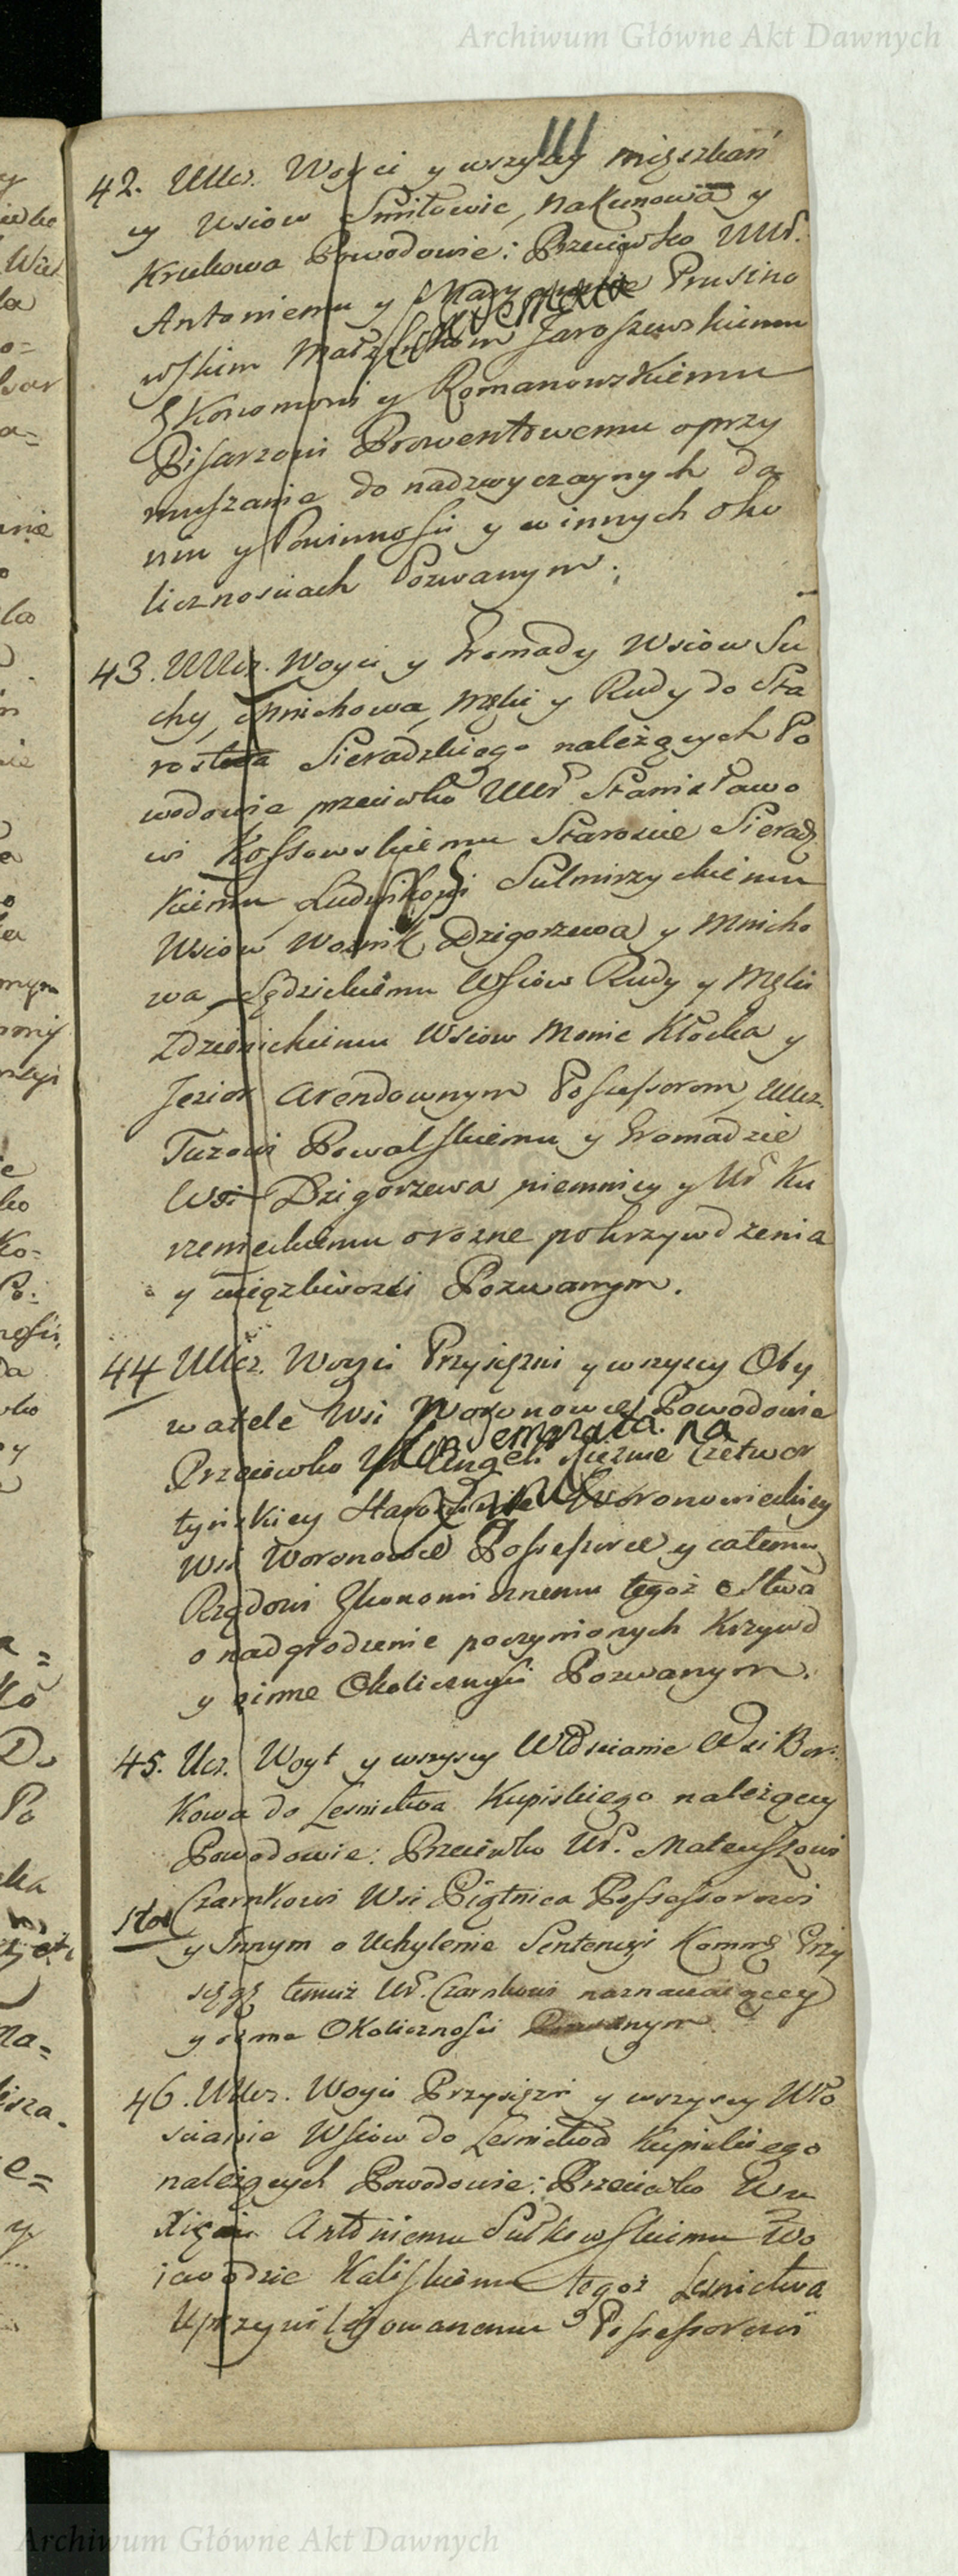 Archiwum Główne Akt Dawnych
42. UUcz. Woyci y wszyscy mięszkań
cy Wsiow Smiłowic, Nakunowa y
Krukowa Powodowie: Przeciwko UUr.
Antoniemu y Prusino
wskim Małżonkom Jaroszewskiemu
Ekonomowi y Romanowskiemu
Pisarzowi Prowentowemu o przy
muszanie do nadzwyczaynych da
nin y Powinnosci y w innych oko
licznosciach Pozwanym.
43. UUcz. Woyci y Gromady Wsiow Su
chy, Mnichowa, Męki y Rudy do Sta
rostwa Sieradzkiego należących Po
wodowie przeciwko UUr Stanisławo
wi Kossowskiemu Staroscie Sieradz
kiemu Ludwikowi Sulmirzyckiemu
Wsiow Woznik Dzigorzewa y Mnicho
wa Sędzickiemu Wsiow Rudy y Męki
Zdzienickiemu Wsiow Monic Kłocka y
Jezior Arendownym Possessorom, UUcz.
Turowi Powalskiemu y Gromadzie
Wsi Dzigorzewa niemnicy y Ur Ku
rzenieckiemu o rozne pokrzywdzenia
y uciązliwosci Pozwanym.
44 UUcz. Woyci Przysięzni y wszyscy Oby
watele Wsi Woronowce Powodowie
Kondemnata na
Przeciwko Ur Angeli Xiężnie Czetwer
tynskiey Woronowieckiey
Wsi Woronowce Possesorce y całemu
Rządowi Ekonomicznemu tegoż Stwa
o nadgrodzenie poczynionych Krzywd
y inne Okolicznosci Pozwanym.
45. Ucz. Woyt y wszyscy Włoscianie Wsi Bor:
kowa do Lesnictwa Kupiskiego należący
Powodowie: Przeciwko Ur. Mateuszowi
Czarnkowi Wsi Piątnica Possessorowi
y Innym o Uchylenie Sentencyi Przy
sęgę temuż Ur. Czarnkowi naznaczaiącey
y inne Okolicznosci Pozwanym
46. UUcz. Woyci Przysięzni y wszyscy Wło
scianie Wsiow do Lesnictwa Kupiskiego
należących Powodowie: Przeciwko
Xięciu Antoniemu Sułkowskiemu Wo
iewodzie Kaliskiemu tegoż Lesnictwa
Uprzywileiowanemu Possessorowi
Archiwum Główne Akt Dawnych